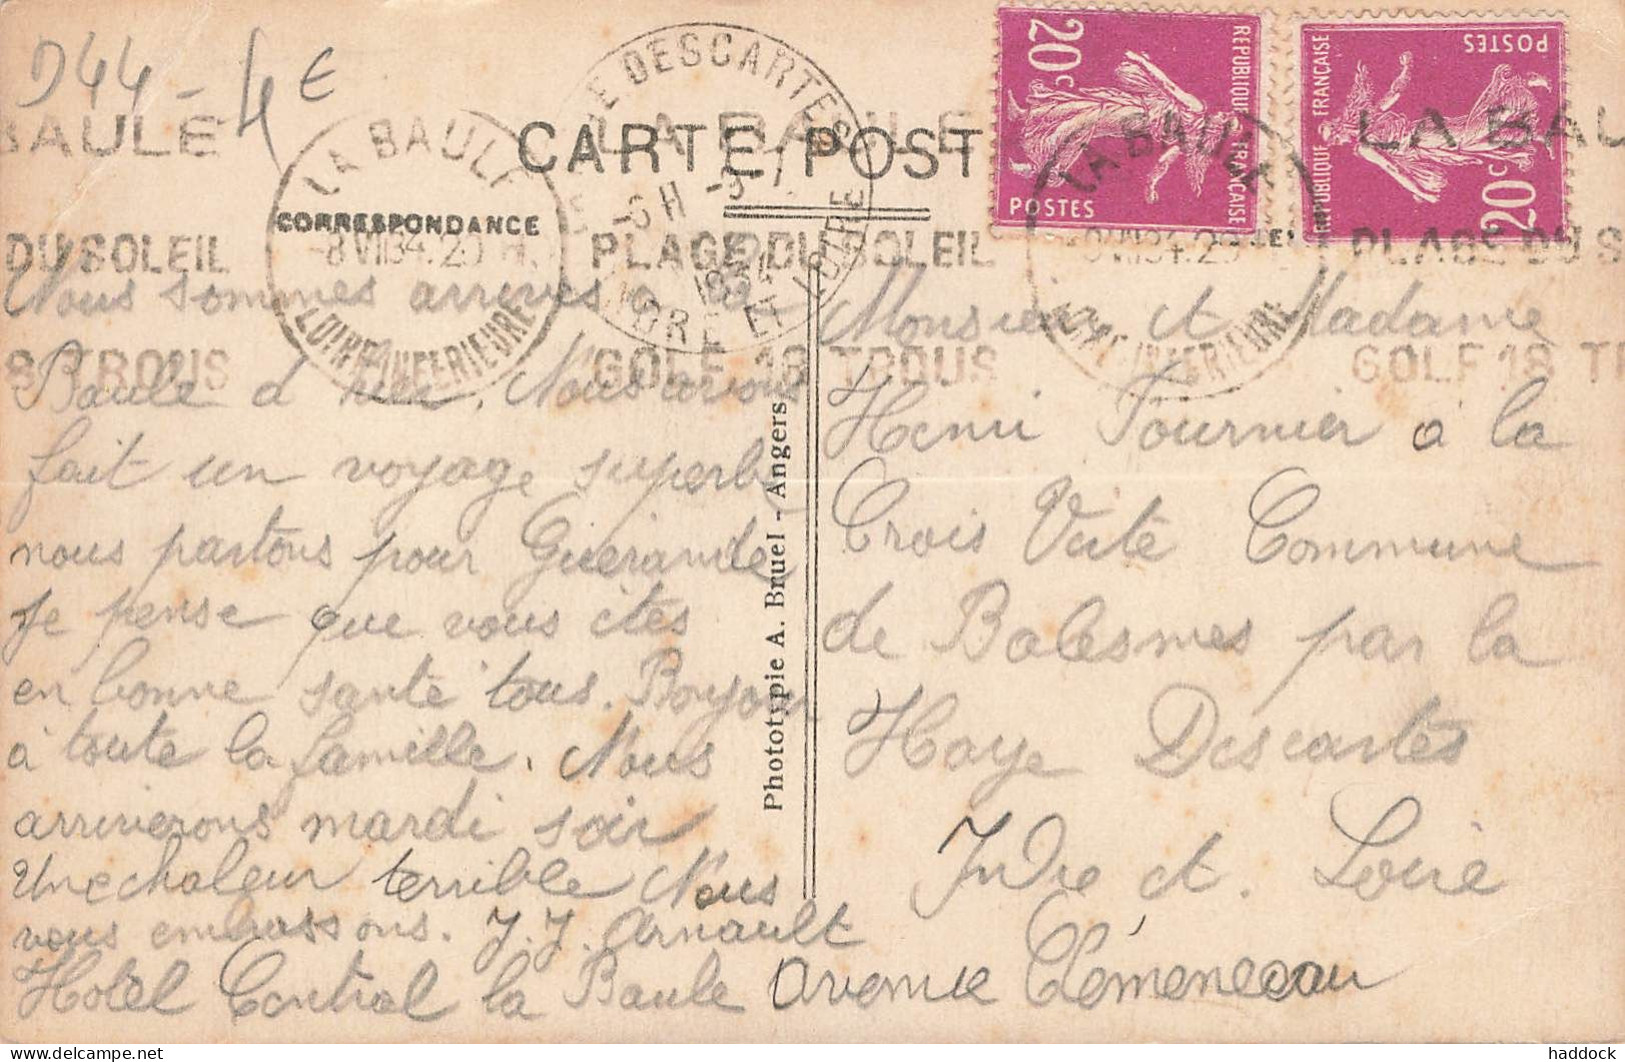 D44 - 4€
CARTE POST
CORRESPONDANCE
LA HAYE DESCARTES
INDRE ET LOIRE
LA BAULE
LOIRE INFERIEURE
8 VII 34. 20 H.
BAULE
DU SOLEIL
18 TROUS
LA BAULE
PLAGE DU SOLEIL
GOLF 18 TROUS
LA BAULE
LOIRE INFERIEURE
LA BAU
PLAGE DU S
GOLF 18 TR
20c
REPUBLIQUE FRANÇAISE
POSTES
POSTES
REPUBLIQUE FRANÇAISE
20c
Nous sommes arrivés à la
Baule d'hier. Nous avons
fait un voyage superbe
nous partons pour Guerande
Je pense que vous êtes
en bonne santé tous. Bonjour
à toute la famille. Nous
arriverons mardi soir
Une chaleur terrible Nous
vous embrassons. J. J. Arnault
Hôtel Central la Baule avenue Clémenceau
Phototypie A. Bruel - Angers
Monsieur et Madame
Henri Fournier à la
Croix Verte Commune
de Balesmes par la
Haye Descartes
Indre et Loire
haddock